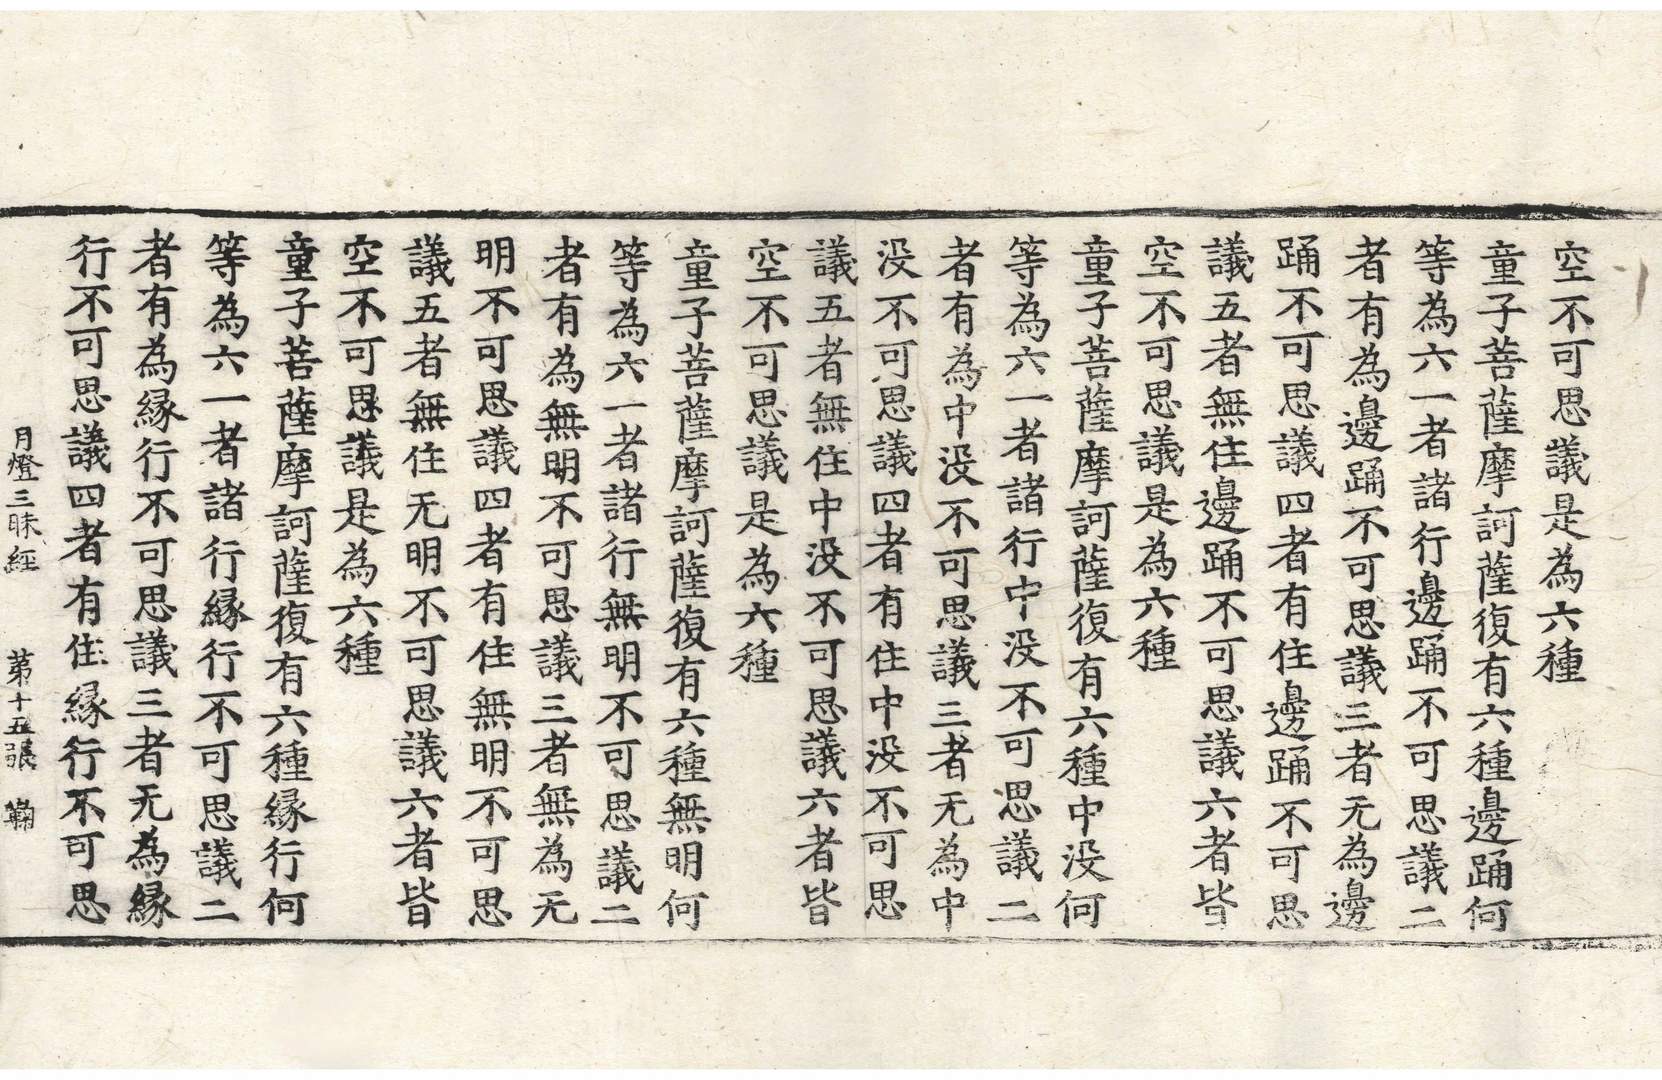 空不可思議是為六種
童子菩薩摩訶薩復有六種邊踊何
等為六一者諸行邊踊不可思議二
者有為邊踊不可思議三者无為邊
踊不可思議四者有住邊踊不可思
議五者無住邊踊不可思議六者皆
空不可思議是為六種
童子菩薩摩訶薩復有六種中没何
等為六一者諸行中没不可思議二
者有為中没不可思議三者无為中
没不可思議四者有住中没不可思
議五者無住中没不可思議六者皆
空不可思議是為六種
童子菩薩摩訶薩復有六種無明何
等為六一者諸行無明不可思議二
者有為無明不可思議三者無為无
明不可思議四者有住無明不可思
議五者無住无明不可思議六者皆
空不可思議是為六種
童子菩薩摩訶薩復有六種縁行何
等為六一者諸行縁行不可思議二
者有為縁行不可思議三者无為縁
行不可思議四者有住縁行不可思
月燈三昧經 第十五張